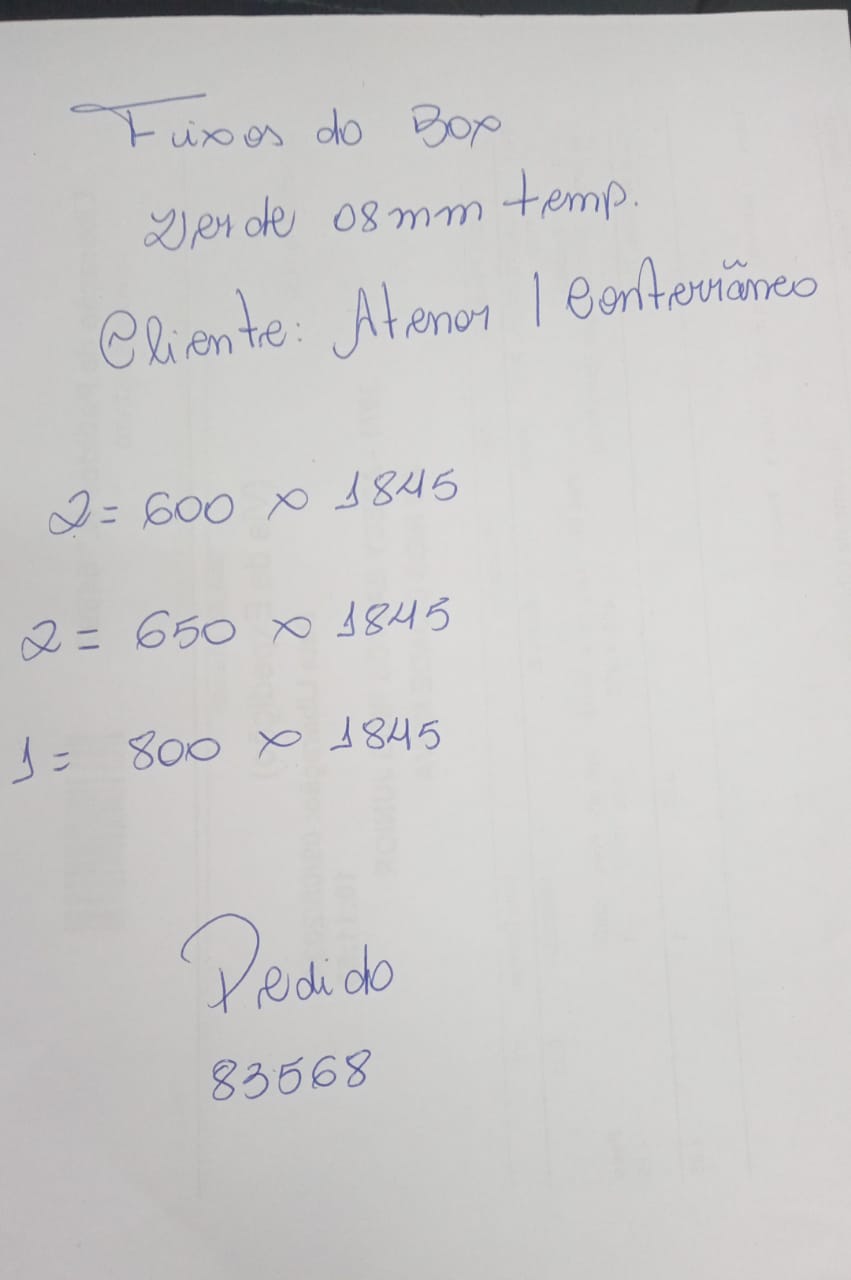 Fixos do Box
Verde 08mm temp.
Cliente: Atenor | Conterrâneo
2= 600 x 1845
2= 650 x 1845
1= 800 x 1845
Pedido
83568